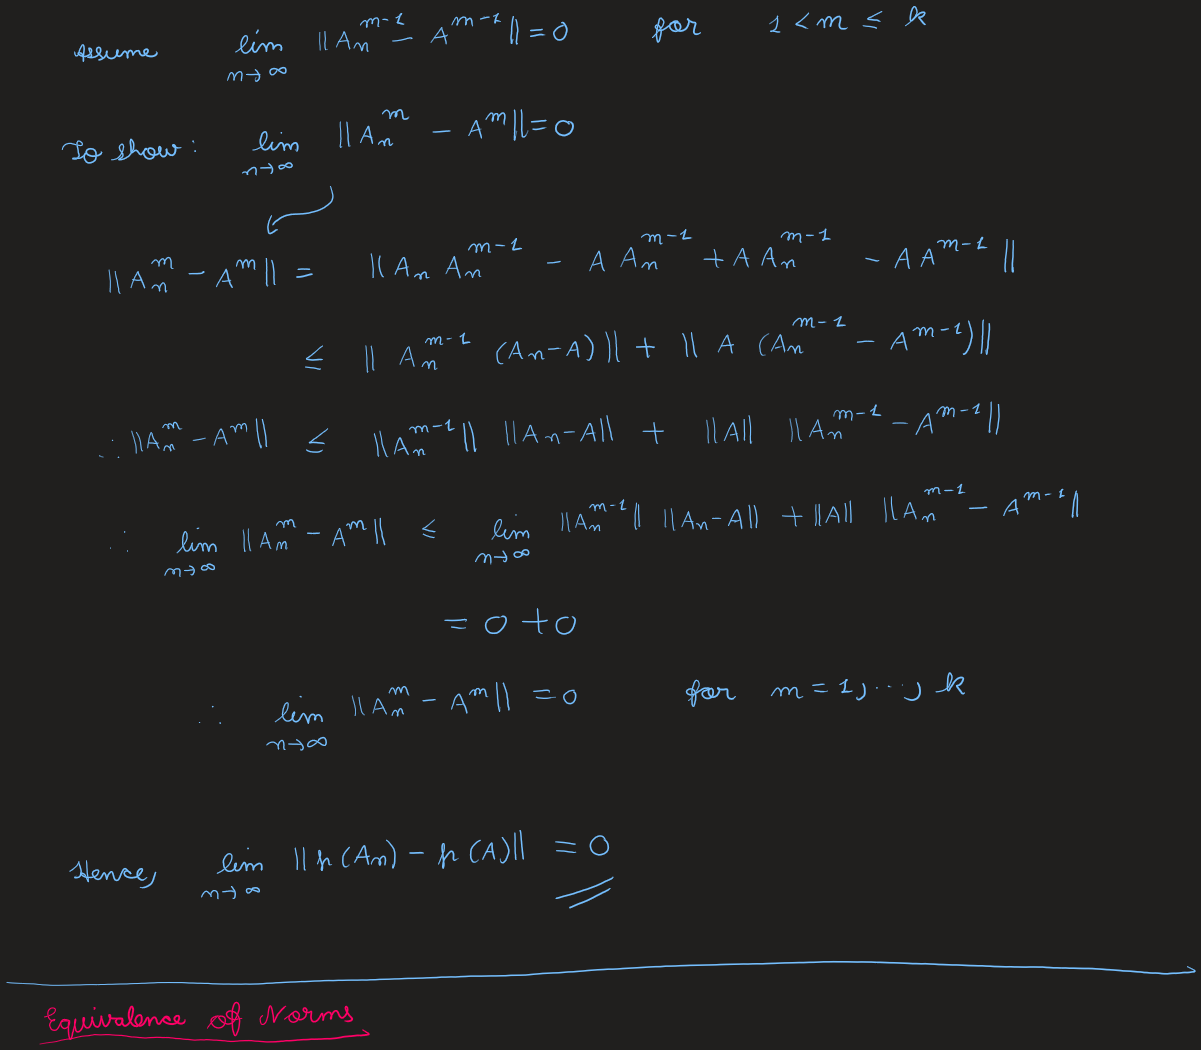 Assume lim_{n→∞} ||A_n^{m-1} - A^{m-1}|| = 0 for 1 < m ≤ k
To show: lim_{n→∞} ||A_n^m - A^m|| = 0
||A_n^m - A^m|| = ||A_n A_n^{m-1} - A A_n^{m-1} + A A_n^{m-1} - A A^{m-1}||
≤ ||A_n^{m-1} (A_n - A)|| + ||A (A_n^{m-1} - A^{m-1})||
∴ ||A_n^m - A^m|| ≤ ||A_n^{m-1}|| ||A_n - A|| + ||A|| ||A_n^{m-1} - A^{m-1}||
∴ lim_{n→∞} ||A_n^m - A^m|| ≤ lim_{n→∞} ||A_n^{m-1}|| ||A_n - A|| + ||A|| ||A_n^{m-1} - A^{m-1}||
= 0 + 0
∴ lim_{n→∞} ||A_n^m - A^m|| = 0 for m = 1, ..., k
Hence, lim_{n→∞} ||p(A_n) - p(A)|| = 0
Equivalence of Norms